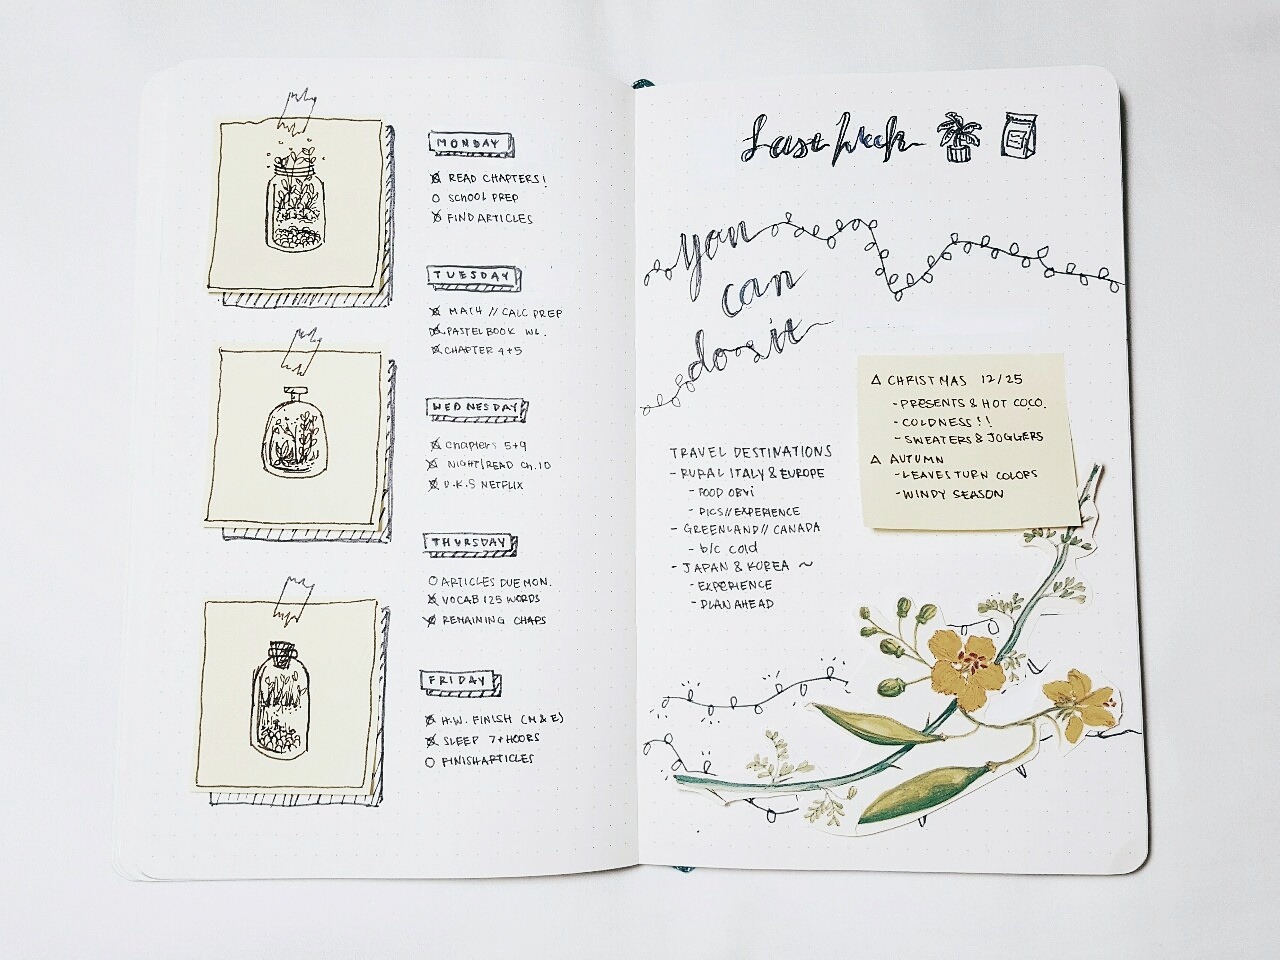 MONDAY
READ CHAPTERS!
SCHOOL PREP
FIND ARTICLES
TUESDAY
MATH // CALC PREP
PASTEL BOOK WL.
CHAPTER 4+5
WEDNESDAY
Chapters 5+9
NIGHT/READ Ch. 10
D.K.S NETFLIX
THURSDAY
ARTICLES DUE MON.
VOCAB 125 WORDS
REMAINING CHAPS
FRIDAY
H.W. FINISH (M & E)
SLEEP 7+ HOURS
FINISH ARTICLES
Last Week
you
can
do it
△ CHRISTMAS 12/25
- PRESENTS & HOT COCO.
- COLDNESS!!
- SWEATERS & JOGGERS
△ AUTUMN
- LEAVES TURN COLORS
- WINDY SEASON
TRAVEL DESTINATIONS
- RURAL ITALY & EUROPE
- FOOD OBVI
- PICS // EXPERIENCE
- GREENLAND // CANADA
- b/c cold
- JAPAN & KOREA ~
- EXPERIENCE
- PLAN AHEAD